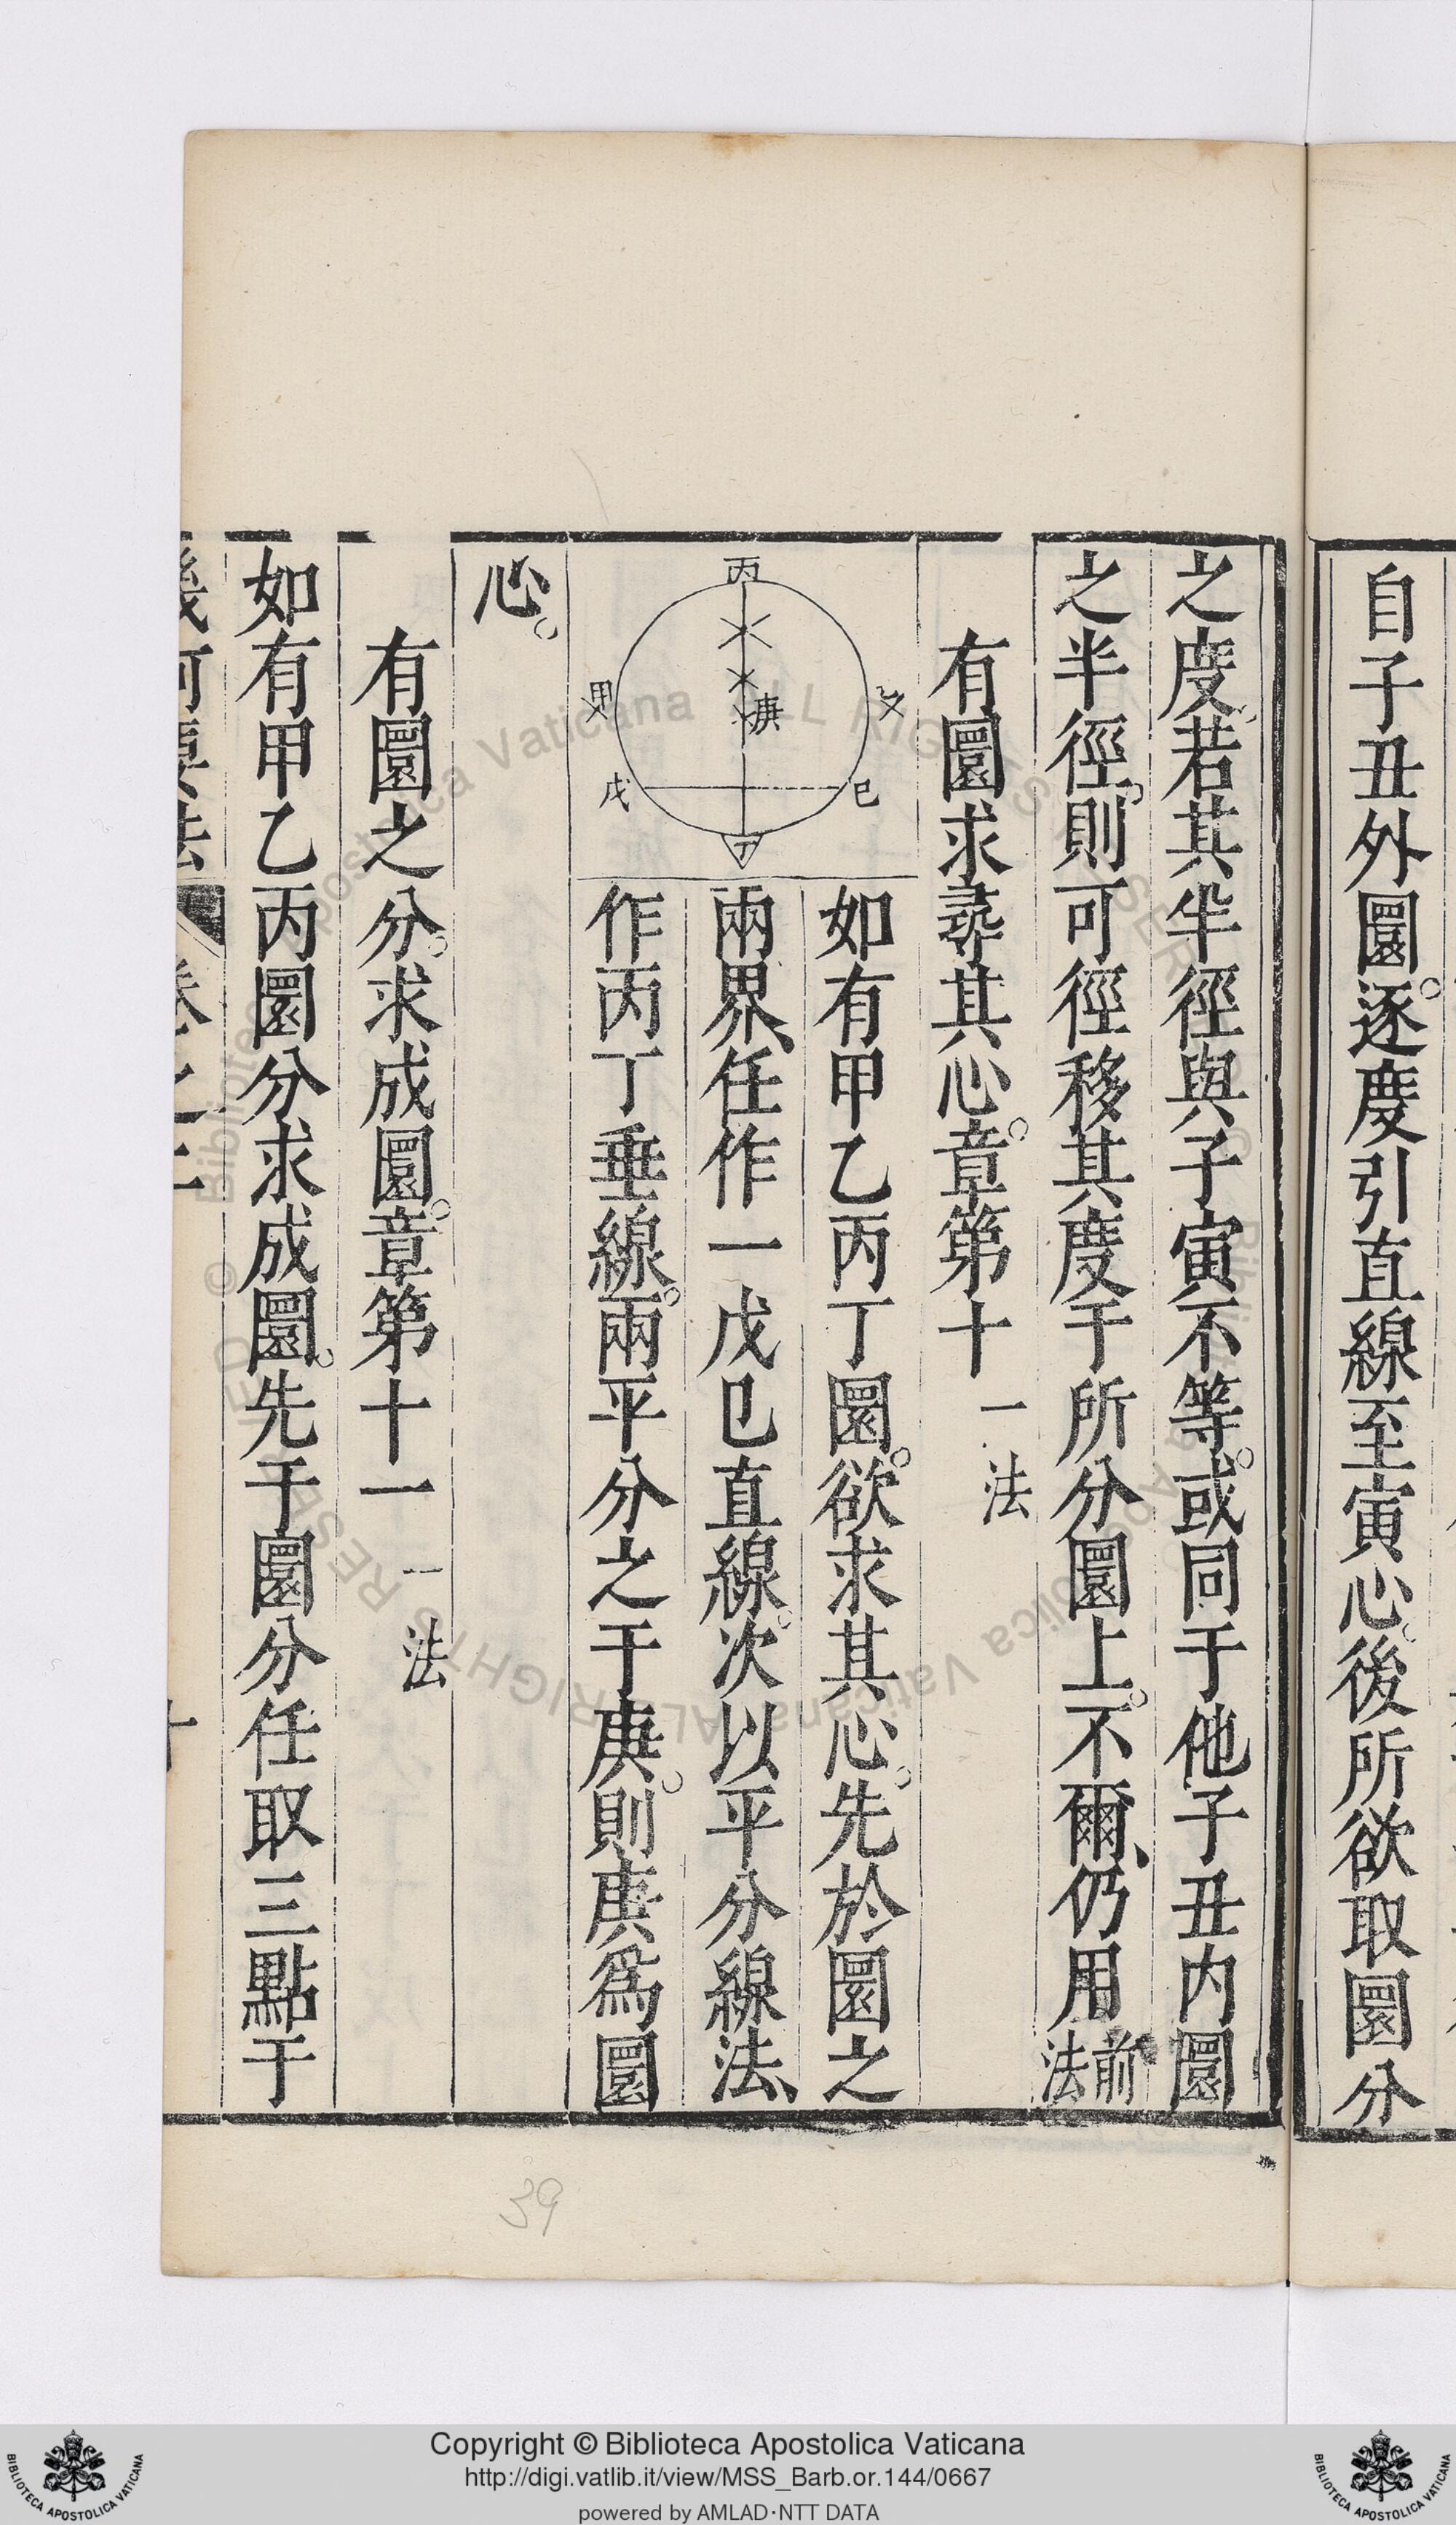 自子丑外圜逐慶引直線至寅心後所欲取圜分
之度若其半徑與子寅不等或同于他子丑内圜
之半徑則可徑移其度于所分圜上不爾仍用前法
有圜求尋其心章第十 一法
丙
甲
乂
庚
戊
巳
丁
如有甲乙丙丁圜欲求其心先於圜之
兩界任作一戊巳直線次以平分線法
作丙丁垂線兩平分之于庚則庚爲圜
心
有圜之分求成圜章第十一 一法
如有甲乙丙圜分求成圜先于圜分任取三點于
幾何要法 卷之二
39
© Biblioteca Apostolica Vaticana ALL RIGHTS RESERVED
Copyright © Biblioteca Apostolica Vaticana
http://digi.vatlib.it/view/MSS_Barb.or.144/0667
powered by AMLAD·NTT DATA
BIBLIOTECA APOSTOLICA VATICANA
BIBLIOTECA APOSTOLICA VATICANA